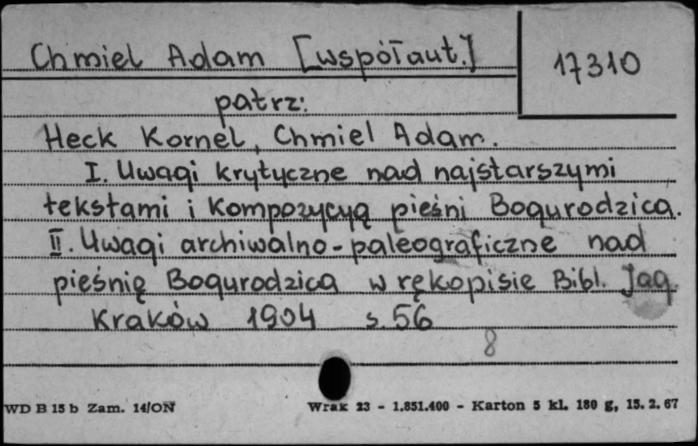 Chmiel Adam [współaut.]
17310
patrz:
Heck Kornel, Chmiel Adam.
I. Uwagi krytyczne nad najstarszymi
tekstami i kompozycyą pieśni Bogurodzica.
II. Uwagi archiwalno-paleograficzne nad
pieśnią Bogurodzica w rękopisie Bibl. Jag.
Kraków 1904 s. 56
8
WD B 15 b Zam. 14/ON Wrak 23 - 1.851.400 - Karton 5 kl. 180 g, 15. 2. 67